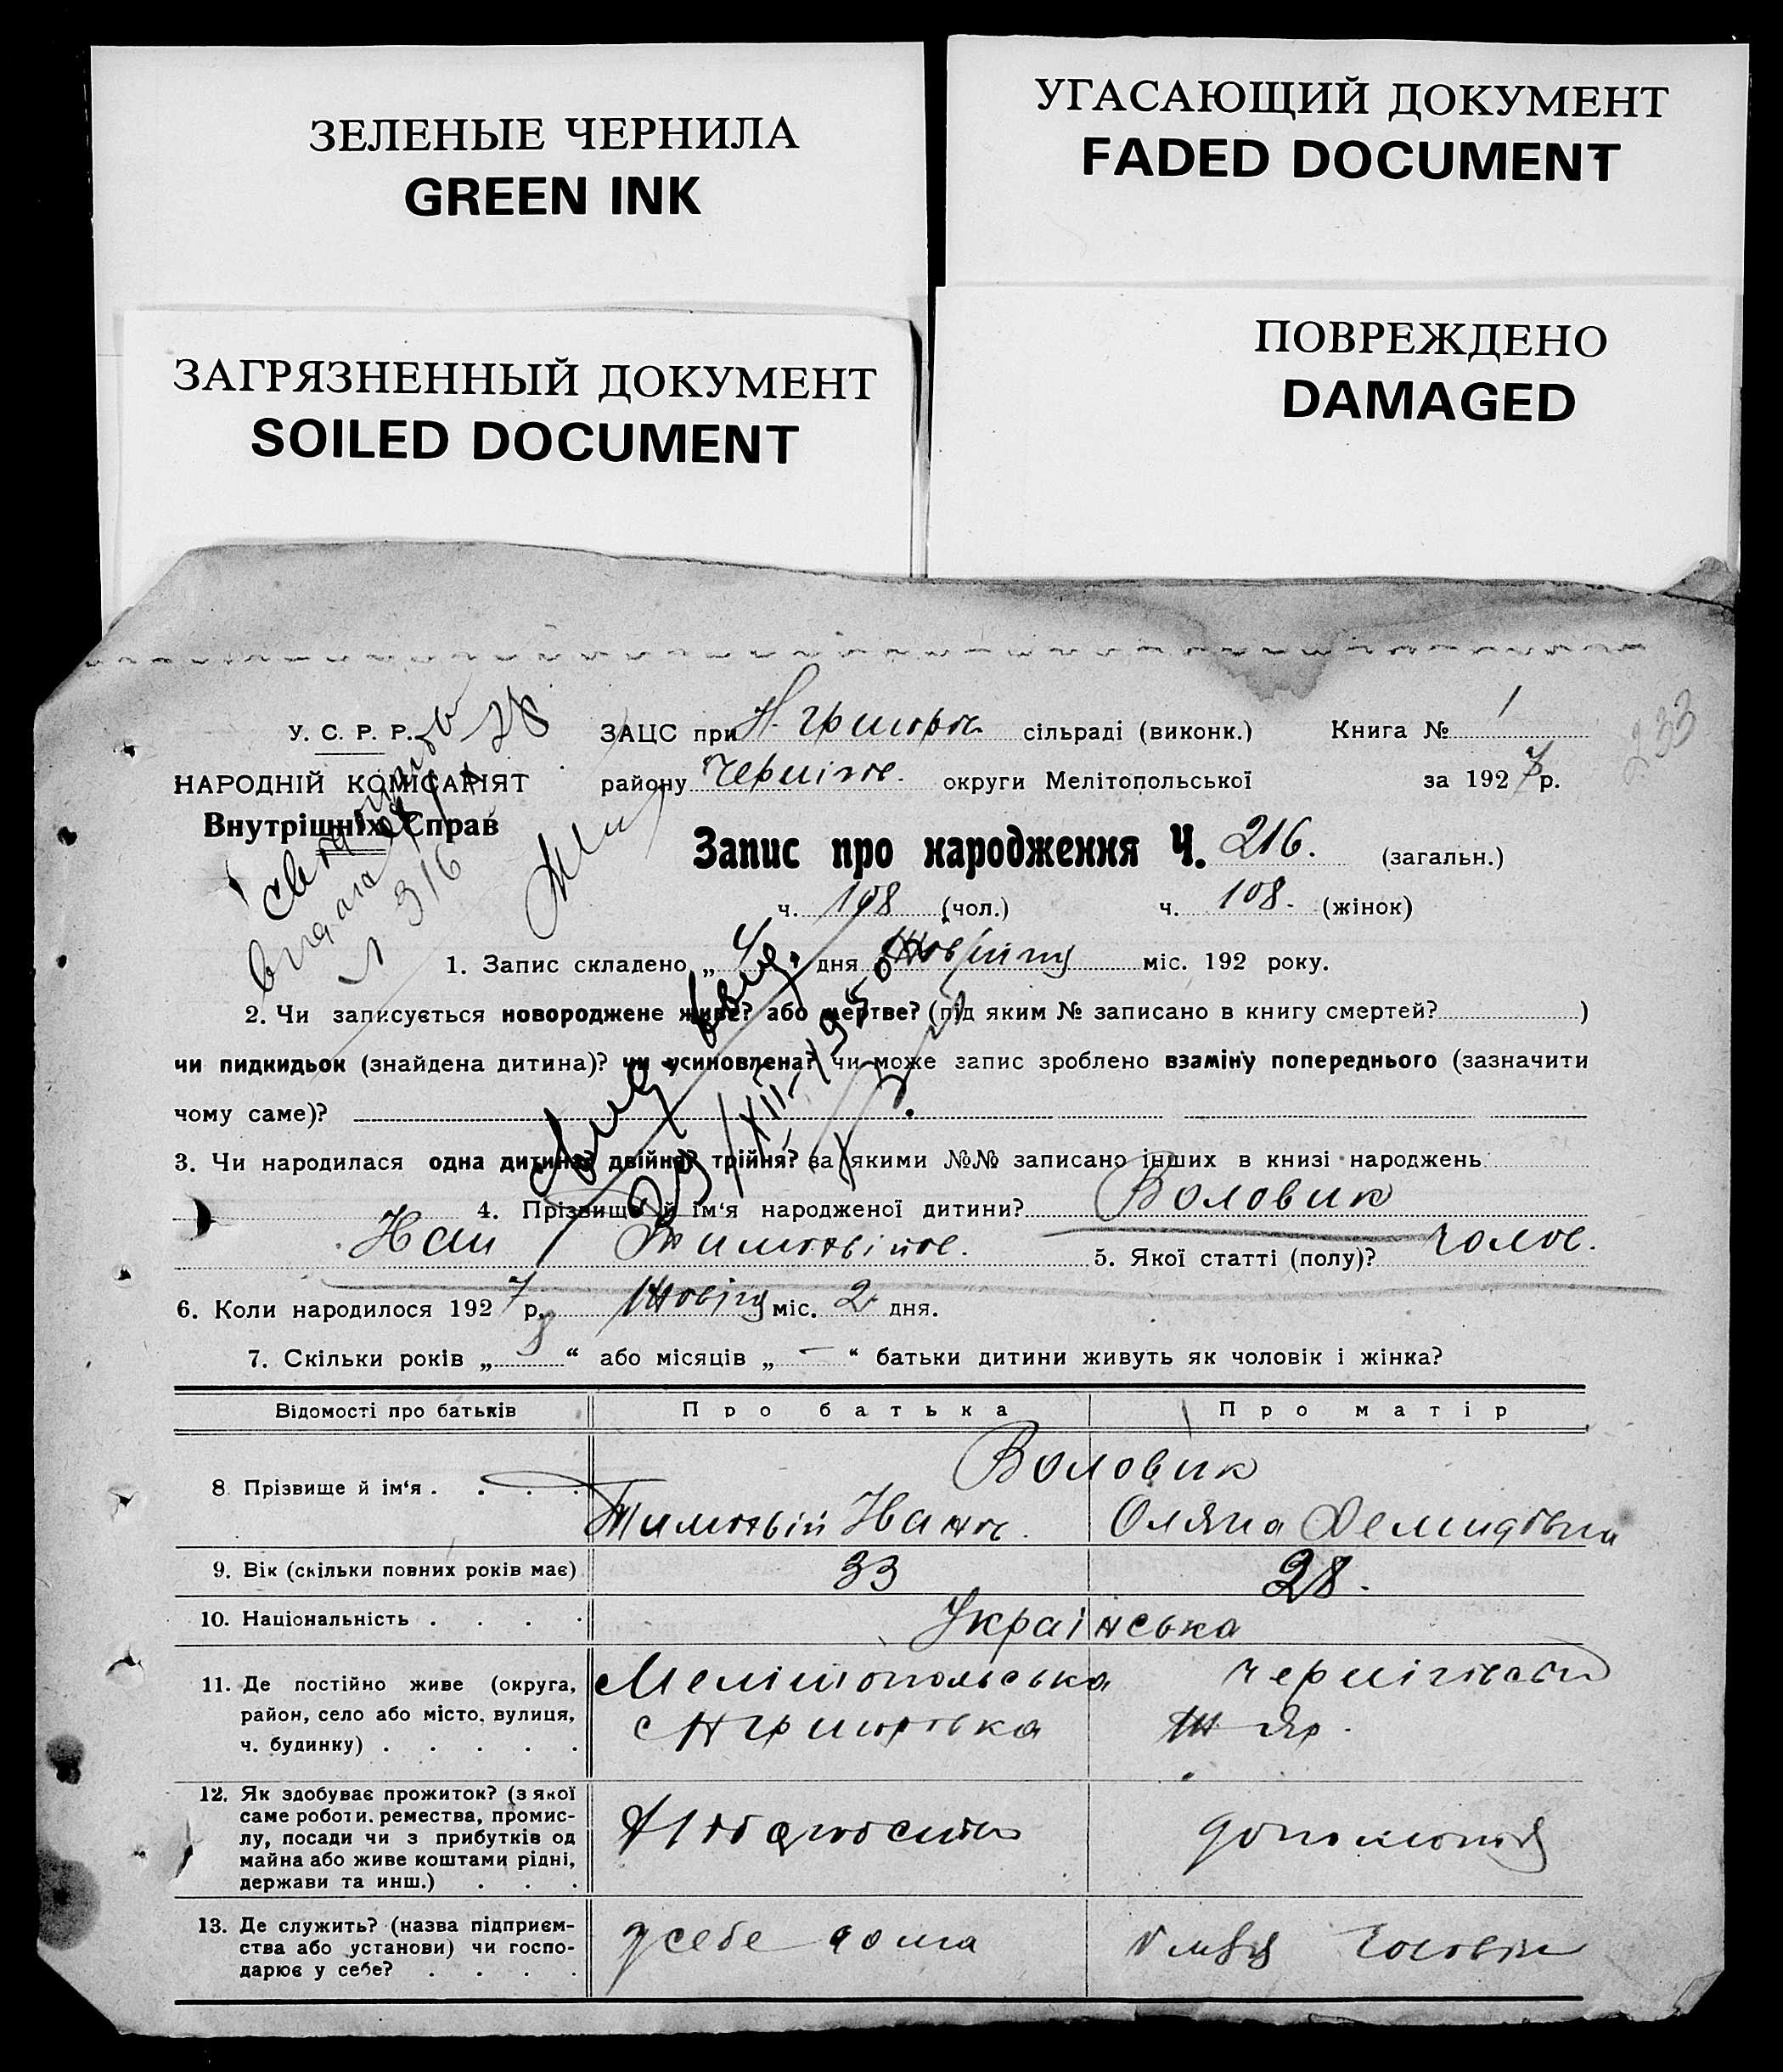 ЗЕЛЕНЫЕ ЧЕРНИЛА
GREEN INK
УГАСАЮЩИЙ ДОКУМЕНТ
FADED DOCUMENT
ЗАГРЯЗНЕННЫЙ ДОКУМЕНТ
SOILED DOCUMENT
ПОВРЕЖДЕНО
DAMAGED
233
У. С. Р. Р.
НАРОДНІЙ КОМІСАРІЯТ
Внутрішніх Справ
316
ЗАЦС при сільраді (виконк.) Книга № 1
району Чернігов. округи Мелітопольської за 1927 р.
Запис про народження Ч. 216. (загальн.)
ч. 108 (чол.) ч. 108. (жінок)
1. Запис складено „ 4 дня міс. 192 року.
2. Чи записується новороджене живе? або мертве? (під яким № записано в книгу смертей? )
чи пидкидьок (знайдена дитина)? чи усиновлена? чи може запис зроблено взаміну попереднього (зазначити
чому саме)?
3. Чи народилася одна дитина? двійня? трійня? за якими №№ записано інших в книзі народжень
4. Прізвище й ім‘я народженої дитини? Воловик
Тимотвійов. 5. Якої статті (полу)? чолов.
6. Коли народилося 1927 р. міс. 2 дня.
7. Скільки років „ 8 “ або місяців „ — “ батьки дитини живуть як чоловік і жінка?
Відомості про батьків Про батька Про матір
8 Прізвище й ім‘я . . . . Воловик
Тимотвій Іванов. Оляна Демидовна
9. Вік (скільки повних років має) 33 28.
10. Національність . . . . Українська
11. Де постійно живе (округа, Мелітопольська Чернігівськ
район, село або місто, вулиця,
ч. будинку) . . . . .
12. Як здобуває прожиток? (з якої
саме роботи, ремества, промис-
лу, посади чи з прибутків од
майна або живе коштами рідні,
держави та инш.) . . .
13. Де служить? (назва підприєм-
ства або установи) чи госпо- у себе дома
дарює у себе? . . . .